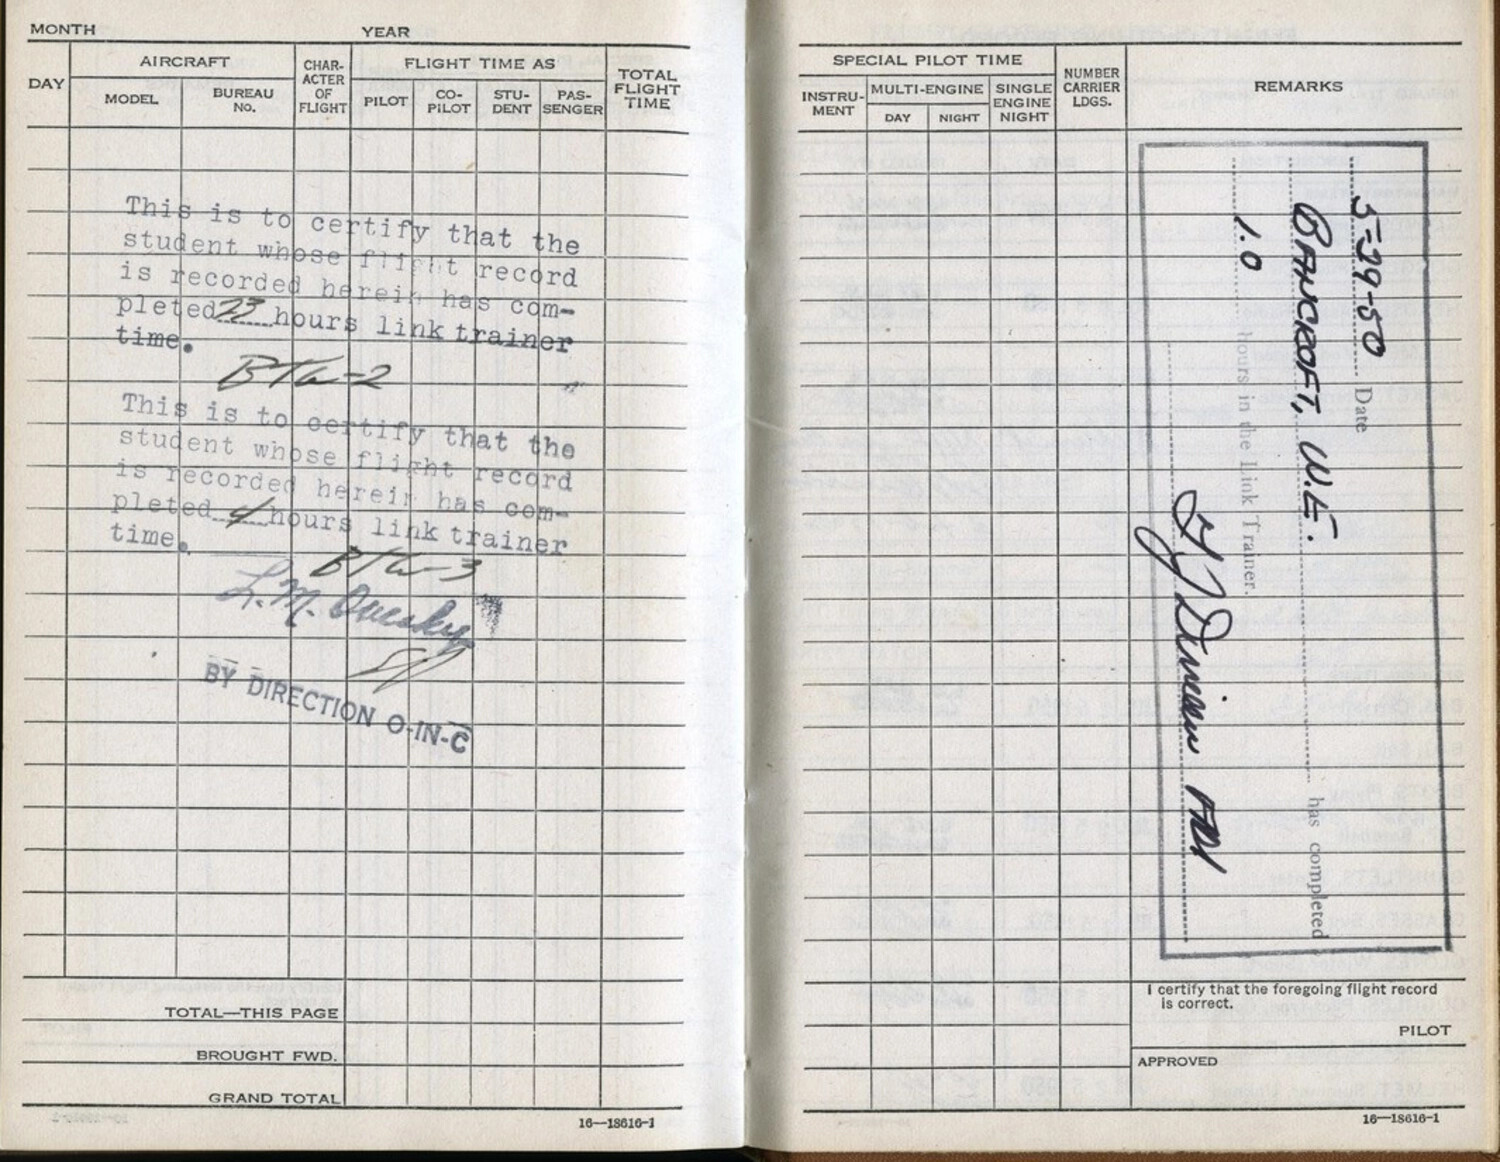 MONTH YEAR
DAY
AIRCRAFT
MODEL
BUREAU
No.
CHAR-
ACTER
OF
FLIGHT
FLIGHT TIME AS
PILOT
CO-
PILOT
STU-
DENT
PAS-
SENGER
TOTAL
FLIGHT
TIME
This is to certify that the
student whose flight record
is recorded herein has com-
pleted 23 hours link trainer
time.
BTU-2
This is to certify that the
student whose flight record
is recorded herein has com-
pleted 4 hours link trainer
time.
BTU-3
L.M.
BY DIRECTION O-IN-C
TOTAL—THIS PAGE
BROUGHT FWD.
GRAND TOTAL
16—18616-1
SPECIAL PILOT TIME
INSTRU-
MENT
MULTI-ENGINE
DAY
NIGHT
SINGLE
ENGINE
NIGHT
NUMBER
CARRIER
LDGS.
REMARKS
5-29-50 Date
BANCROFT, W.E. has completed
1.0 hours in the Link Trainer.
I certify that the foregoing flight record
is correct.
PILOT
APPROVED
16—18616-1